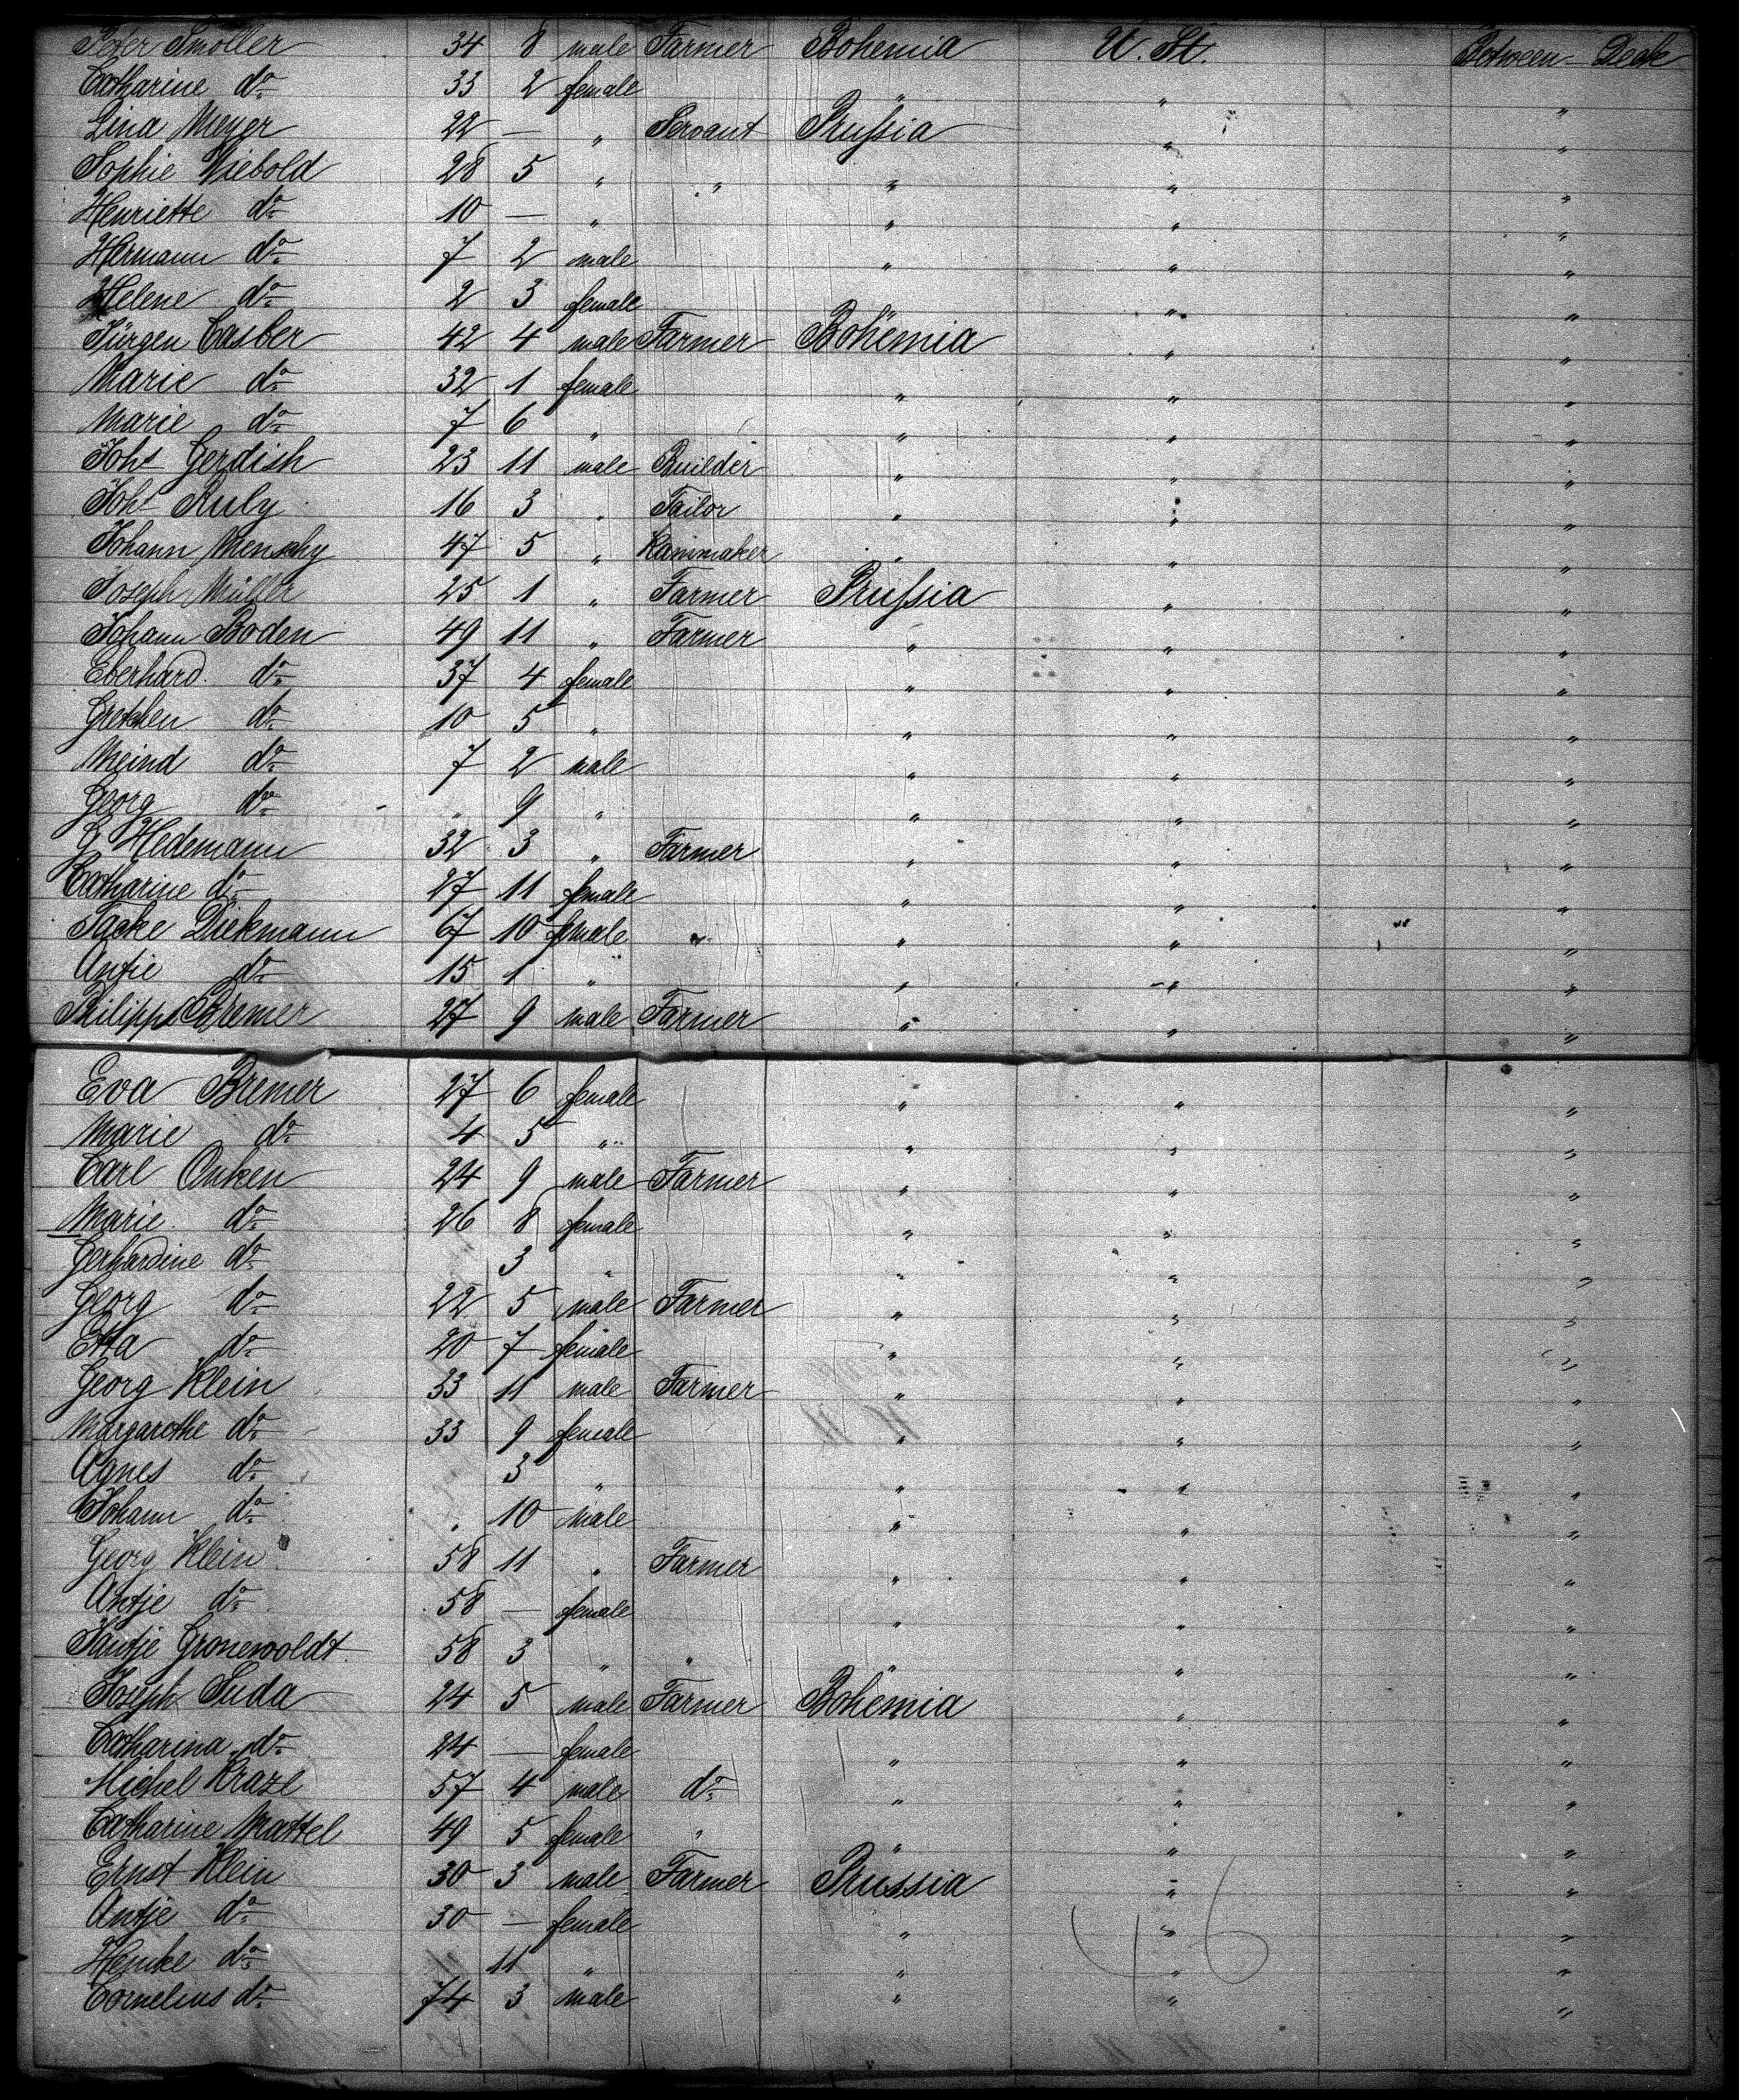 Peter Smoller 34 8 male Farmer Bohemia U. St. Between Deck
Catharine do 33 2 female " " "
Lina Meyer 22 — " Servant Prussia " "
Sophie Viebold 28 5 " " " " "
Henriette do 10 — " " " "
Hermann do 7 2 male " " "
Helene do 2 3 female " "
Jürgen Casber 42 4 male Farmer Bohemia " "
Marie do 32 1 female " " "
Marie do 7 6 " " " "
Johs Gerdish 23 11 male Builder " " "
Joh. Ruly 16 3 " Tailor " " "
Johann Menschy 47 5 " Kammaker " " "
Joseph Müller 25 1 " Farmer Prussia " "
Johann Boden 49 11 " Farmer " " "
Eberhard do 37 4 female " " "
Gretchen do 10 5 " " " "
Meind do 7 2 male " " "
Georg do " 9 " " " "
G Hedemann 32 3 " Farmer " " "
Catharine do 27 11 female " " "
Tacke Diekmann 67 10 female " " " "
Antje do 15 1 " " " "
Philipp Bremer 27 9 male Farmer " " "
Eva Bremer 27 6 female " " "
Marie do 4 5 " " " "
Carl Onken 24 9 male Farmer " " "
Marie do 26 8 female " " "
Gerhardine do 3 " " " "
Georg do 22 5 male Farmer " " "
Etta do 20 7 female " " "
Georg Klein 33 11 male Farmer " " "
Margarethe do 33 9 female " " "
Agnes do 3 " " " "
Johann do " 10 male " " "
Georg Klein 58 11 " Farmer " " "
Antje do 58 — female " " "
Tantje Gronewoldt 58 3 " " " " "
Joseph Suda 24 5 male Farmer Bohemia " "
Catharina do 24 — female " " "
Michel Krazl 57 4 male do " " "
Catharine Mattel 49 5 female " " " "
Ernst Klein 30 3 male Farmer Prussia " "
Antje do 30 — female " " "
Hemke do 11 " " " "
Cornelius do 74 3 male " " "
46